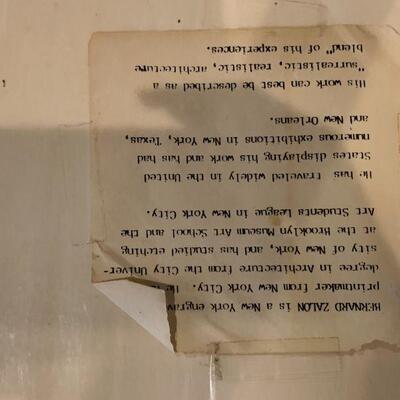 BERNARD ZALON is a New York engrav
printmaker from New York City. He
degree in Architecture from the City Univer-
sity of New York, and has studied etching
at the Brooklyn Museum Art School and the
Art Students League in New York City.
He has traveled widely in the United
States displaying his work and has had
numerous exhibitions in New, York, Texas,
and New Orleans.
His work can best be described as a
"surrealistic, realistic, architecture
blend" of his experiences.